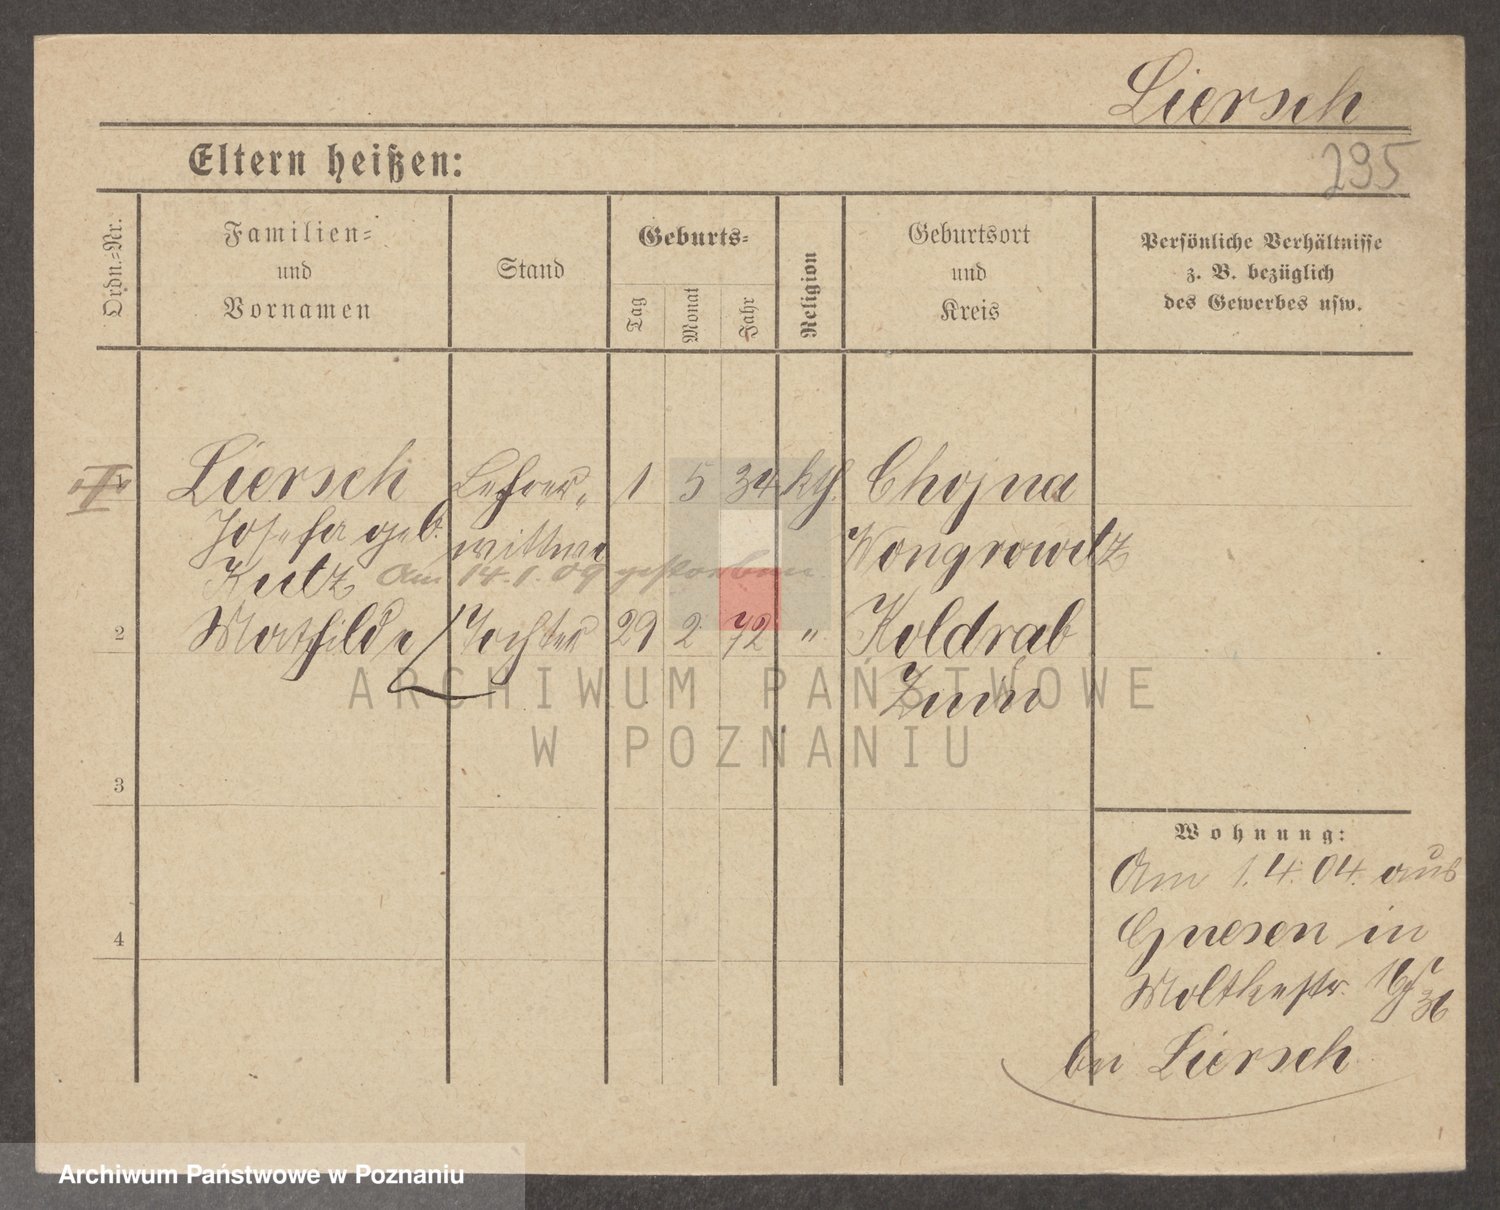 Liersch
Eltern heißen:
295
Ordn.-Nr.
Familien-
und
Vornamen
Stand
Geburts-
Tag
Monat
Jahr
Religion
Geburtsort
und
Kreis
Persönliche Verhältnisse
z. B. bezüglich
des Gewerbes usw.
Liersch Lehrer- 1 5 34 kth. Chojna
Josefa geb. wittwe Wongrowitz
Kutz am 14.1.09 gestorben
2 Mathilde Tochter 29 2 72 " Koldrab
Znin
3
4
Wohnung:
Am 1.4.04. aus
Gnesen in
Moltkestr.
bei Liersch
ARCHIWUM PAŃSTWOWE
W POZNANIU
Archiwum Państwowe w Poznaniu